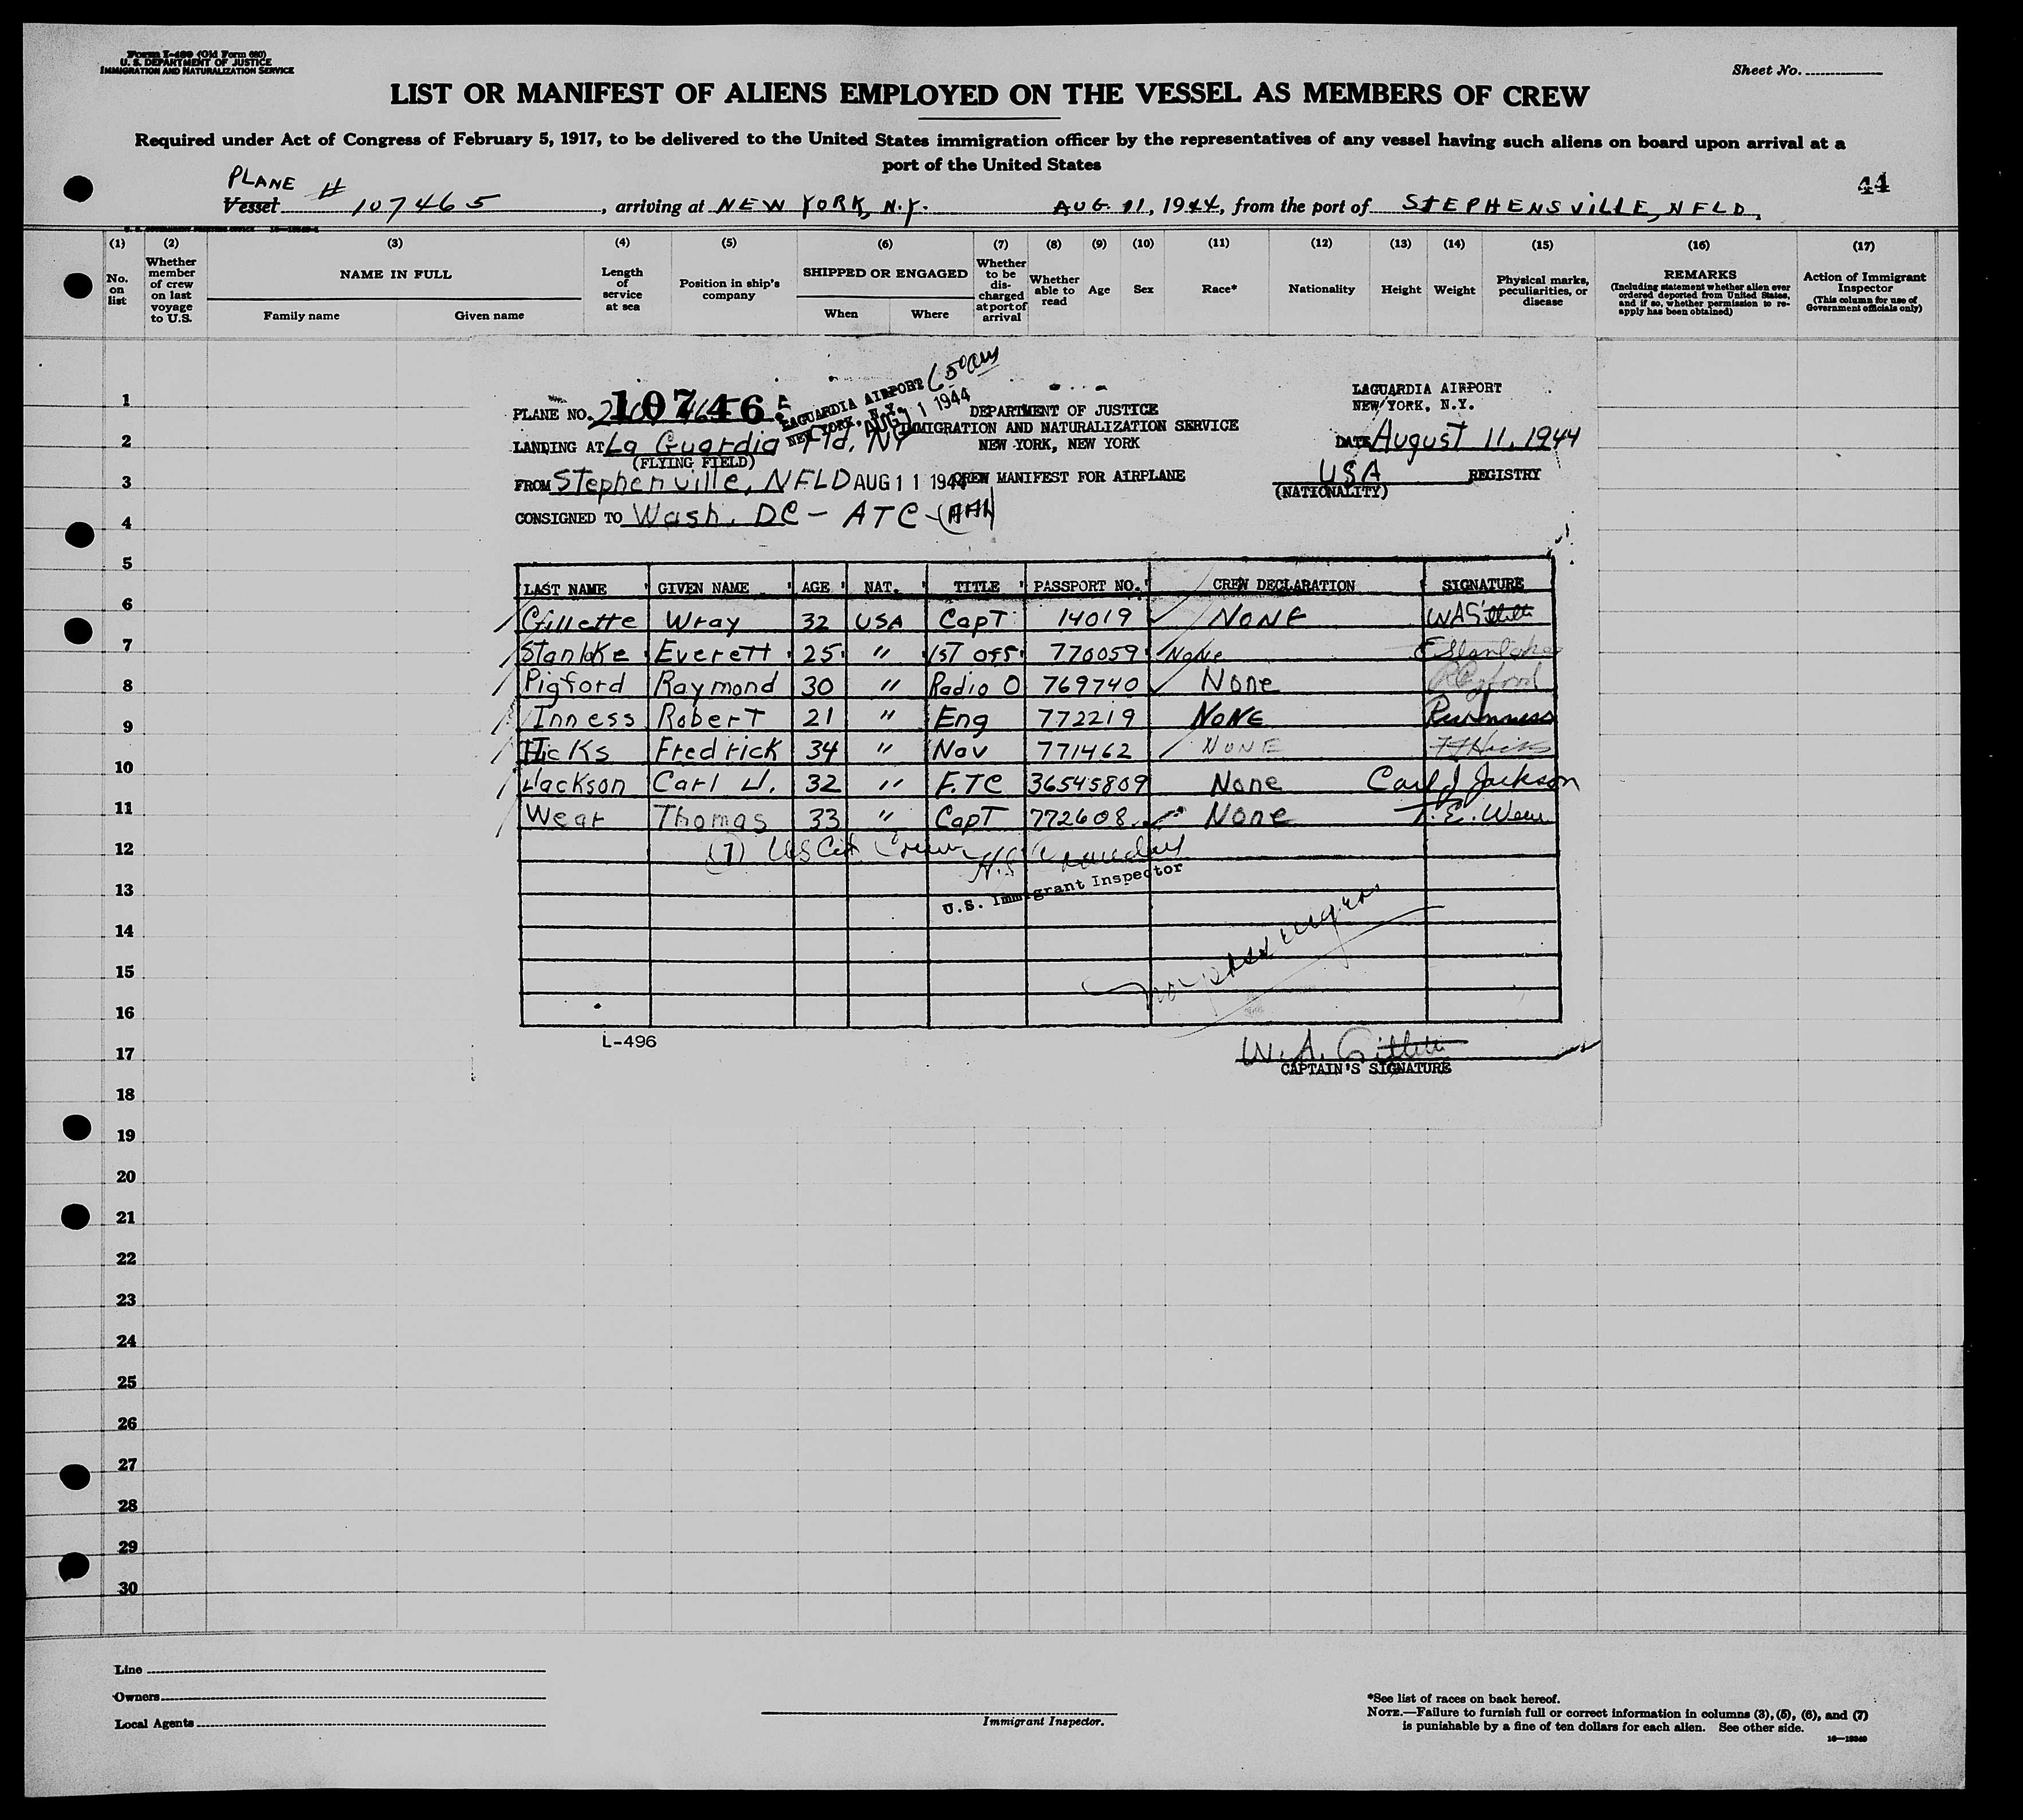 Form I-489 (Old Form 680)
U. S. DEPARTMENT OF JUSTICE
IMMIGRATION AND NATURALIZATION SERVICE
Sheet No.
LIST OR MANIFEST OF ALIENS EMPLOYED ON THE VESSEL AS MEMBERS OF CREW
Required under Act of Congress of February 5, 1917, to be delivered to the United States immigration officer by the representatives of any vessel having such aliens on board upon arrival at a
port of the United States
44
PLANE #
Vessel 107465, arriving at NEW YORK, N.Y. AUG. 11, 1944, from the port of STEPHENSVILLE, NFLD.
(1) (2) (3) (4) (5) (6) (7) (8) (9) (10) (11) (12) (13) (14) (15) (16) (17)
No. on list
Whether member of crew on last voyage to U.S.
NAME IN FULL
Family name Given name
Length of service at sea
Position in ship's company
SHIPPED OR ENGAGED
When Where
Whether to be discharged at port of arrival
Whether able to read
Age
Sex
Race*
Nationality
Height
Weight
Physical marks, peculiarities, or disease
REMARKS
(Including statement whether alien ever ordered deported from United States, and if so, whether permission to reapply has been obtained)
Action of Immigrant Inspector
(This column for use of Government officials only)
LAGUARDIA AIRPORT
NEW YORK, N.Y.
AUG 11 1944
650 am
LAGUARDIA AIRPORT
NEW YORK, N.Y.
PLANE NO. 107465
DEPARTMENT OF JUSTICE
IMMIGRATION AND NATURALIZATION SERVICE
NEW YORK, NEW YORK
LANDING AT La Guardia Fld, NY
(FLYING FIELD)
DATE August 11, 1944
FROM Stephenville, NFLD AUG 11 1944
CREW MANIFEST FOR AIRPLANE
USA REGISTRY
(NATIONALITY)
CONSIGNED TO Wash. DC - ATC -
LAST NAME GIVEN NAME AGE NAT. TITLE PASSPORT NO. CREW DECLARATION SIGNATURE
Gillette Wray 32 USA Capt 14019 NONE WAGillette
Stanlake Everett 25 " 1st off 770059 None EStanlake
Pigford Raymond 30 " Radio O 769740 None RPigford
Inness Robert 21 " Eng 772219 NONE
Hicks Fredrick 34 " Nav 771462 NONE FJHicks
Jackson Carl J. 32 " F.TC 36545809 None Carl J Jackson
Wear Thomas 33 " Capt 772608 None T. E. Wear
(7) US Cit Crew
U.S. Immigrant Inspector
L-496
W. A. Gillette
CAPTAIN'S SIGNATURE
1
2
3
4
5
6
7
8
9
10
11
12
13
14
15
16
17
18
19
20
21
22
23
24
25
26
27
28
29
30
Line
Owners
Local Agents
Immigrant Inspector.
*See list of races on back hereof.
NOTE.—Failure to furnish full or correct information in columns (3), (5), (6), and (7)
is punishable by a fine of ten dollars for each alien. See other side.